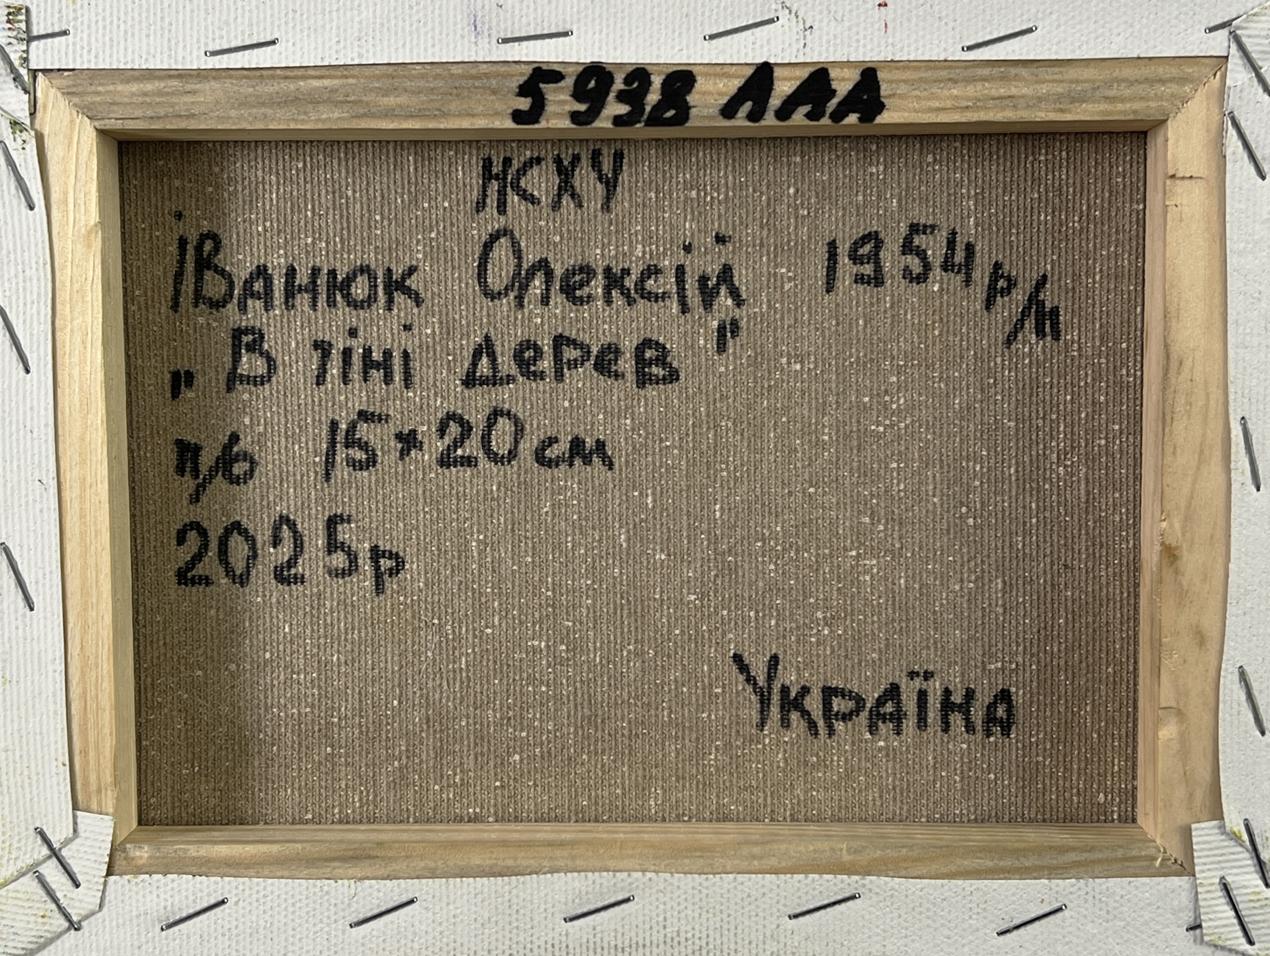 5938 ЛАА
НСХУ
Іванюк Олексій 1954 р/н
„В тіні дерев"
п/о 15×20 см
2025р
Україна